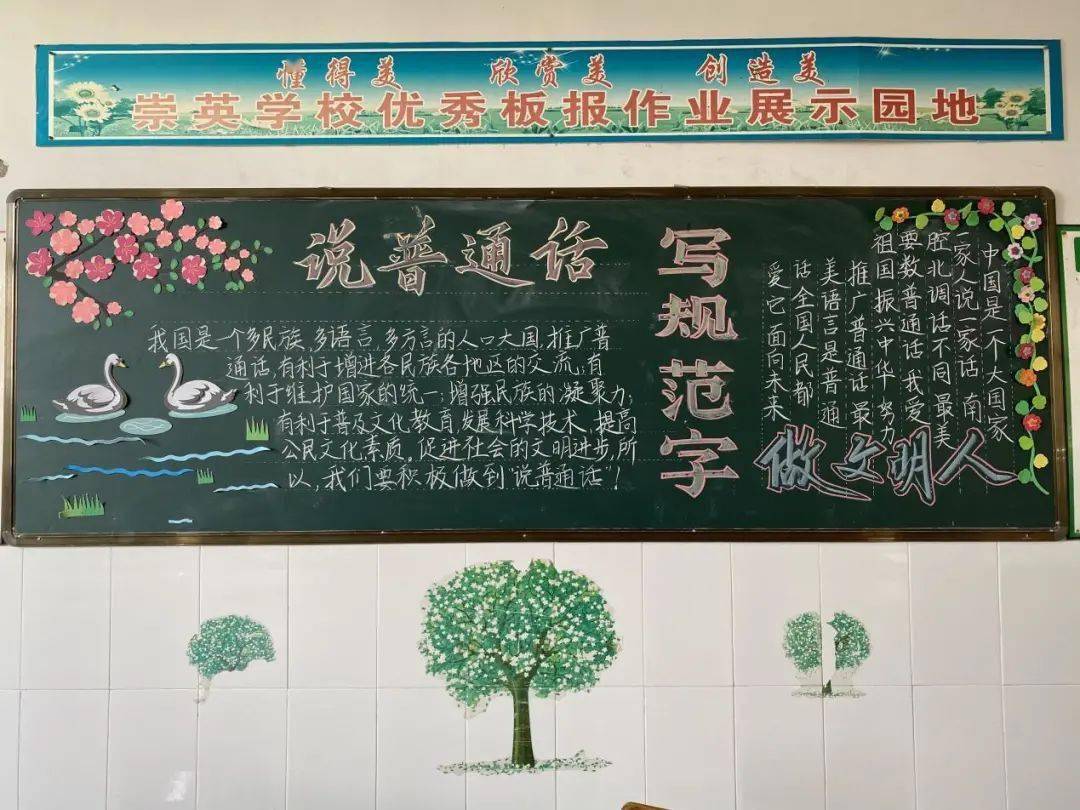 懂得美 欣赏美 创造美
崇英学校优秀板报作业展示园地
说普通话
我国是一个多民族,多语言,多方言的人口大国,推广普
通话,有利于增进各民族各地区的交流,有
利于维护国家的统一;增强民族的凝聚力;
有利于普及文化教育发展科学技术,提高
公民文化素质。促进社会的文明进步,所
以,我们要积极做到“说普通话”!
写规范字
中国是一个大国家
一家人说一家话南
腔北调话不同最美
要数普通话我爱
祖国振兴中华努力
推广普通话最
美语言是普通
话全国人民都
爱它面向未来
做文明人